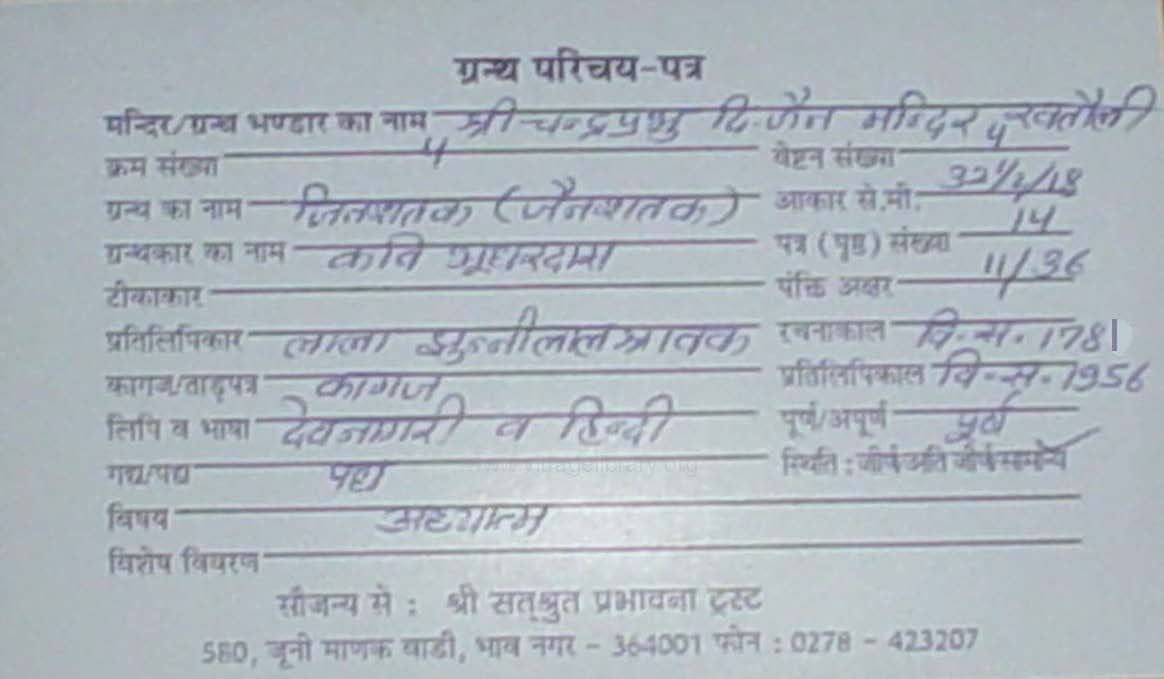 ग्रन्थ परिचय-पत्र
मन्दिर/ग्रन्थ भण्डार का नाम श्री चन्द्रप्रभु दि. जैन मन्दिर, खतौली
क्रम संख्या 4 वेष्टन संख्या 4
ग्रन्थ का नाम जिनशतक (जैनशतक) आकार से.मी.
ग्रन्थकार का नाम कवि भूधरदास पत्र (पृष्ठ) संख्या 14
टीकाकार पंक्ति अक्षर 11/36
प्रतिलिपिकार लाला झुन्नीलाल श्रावक रचनाकाल वि.स. 1781
कागज/ताड़पत्र कागज प्रतिलिपिकाल वि.स. 1956
लिपि व भाषा देवनागरी व हिन्दी पूर्ण/अपूर्ण पूर्ण
गद्य/पद्य पद्य स्थिति : जीर्ण अति जीर्ण सामान्य
www.vitragelibrary.org
विषय अध्यात्म
विशेष विवरण
सौजन्य से : श्री सत्श्रुत प्रभावना ट्रस्ट
580, जूनी माणक वाडी, भाव नगर - 364001 फोन : 0278 - 423207